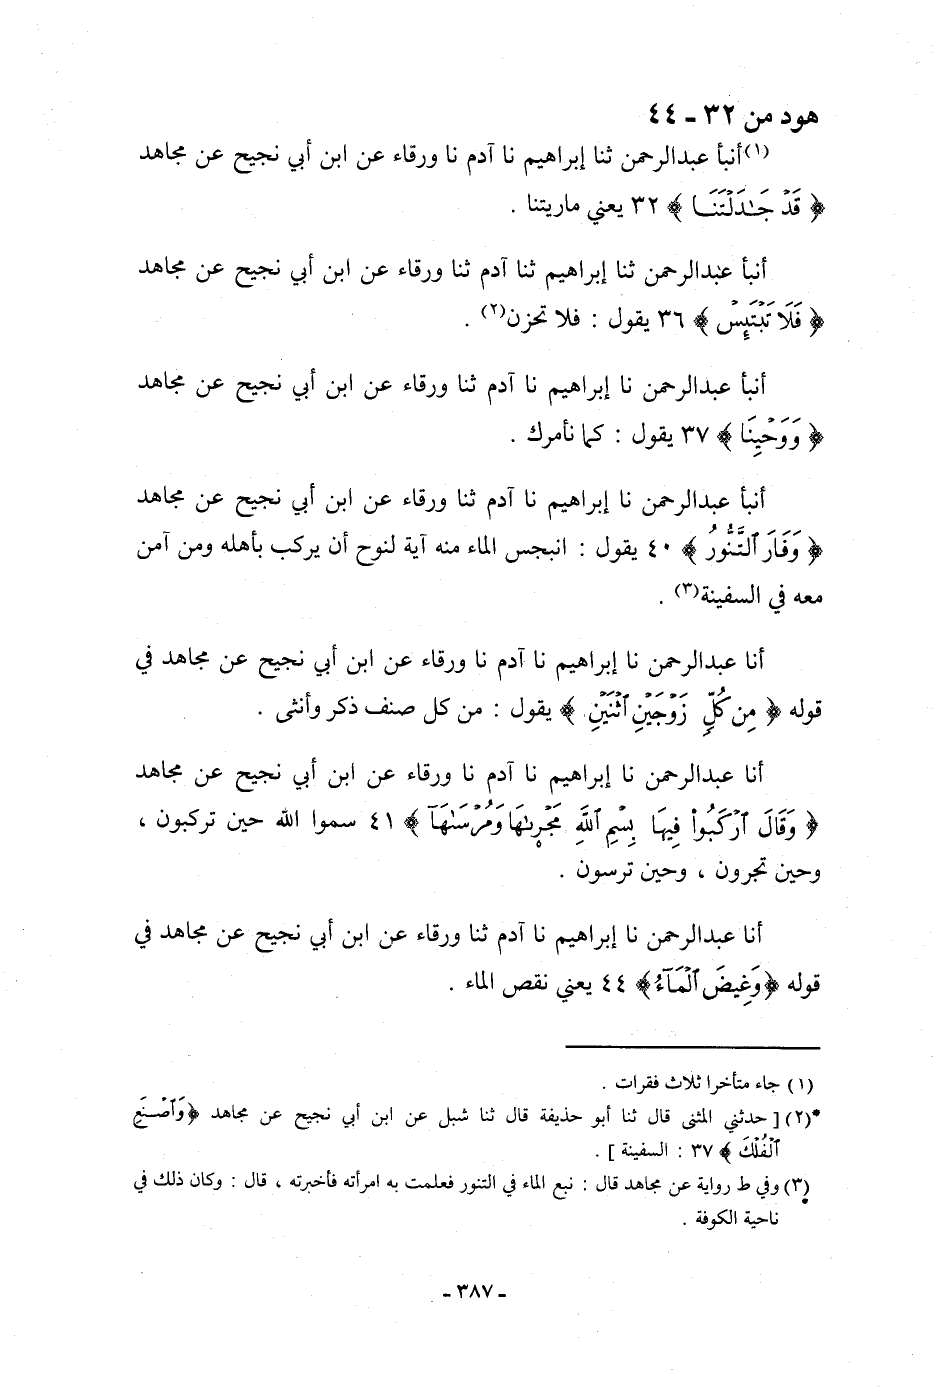 هود من ٣٢ ـ ٤٤
(١)أنبأ عبدالرحمن ثنا إبراهيم نا آدم نا ورقاء عن ابن أبي نجيح عن مجاهد
﴿ قَدْ جَـٰدَلْتَنَـا ﴾ ٣٢ يعني ماريتنا .
أنبأ عبدالرحمن ثنا إبراهيم ثنا آدم ثنا ورقاء عن ابن أبي نجيح عن مجاهد
﴿ فَلَا تَبْتَئِسْ ﴾ ٣٦ يقول : فلا تحزن(٢) .
أنبأ عبدالرحمن نا إبراهيم نا آدم ثنا ورقاء عن ابن أبي نجيح عن مجاهد
﴿ وَوَحْيِنَا ﴾ ٣٧ يقول : كما نأمرك .
أنبأ عبدالرحمن نا إبراهيم نا آدم ثنا ورقاء عن ابن أبي نجيح عن مجاهد
﴿ وَفَارَ ٱلتَّنُّورُ ﴾ ٤٠ يقول : انبجس الماء منه آية لنوح أن يركب بأهله ومن آمن
معه في السفينة(٣) .
أنا عبدالرحمن نا إبراهيم نا آدم نا ورقاء عن ابن أبي نجيح عن مجاهد في
قوله ﴿ مِن كُلٍّ زَوْجَيْنِ ٱثْنَيْنِ ﴾ يقول : من كل صنف ذكر وأنثى .
أنا عبدالرحمن نا إبراهيم نا آدم نا ورقاء عن ابن أبي نجيح عن مجاهد
﴿ وَقَالَ ٱرْكَبُوا۟ فِيهَا بِسْمِ ٱللَّهِ مَجْر۪ىٰهَا وَمُرْسَىٰهَآ ﴾ ٤١ سموا الله حين تركبون ،
وحين تجرون ، وحين ترسون .
أنا عبدالرحمن نا إبراهيم نا آدم ثنا ورقاء عن ابن أبي نجيح عن مجاهد في
قوله ﴿وَغِيضَ ٱلْمَآءُ﴾ ٤٤ يعني نقص الماء .
(١) جاء متأخرا ثلاث فقرات .
*(٢) [ حدثني المثنى قال ثنا أبو حذيفة قال ثنا شبل عن ابن أبي نجيح عن مجاهد ﴿وَٱصْنَعِ
ٱلْفُلْكَ ﴾ ٣٧ : السفينة ] .
(٣) وفي ط رواية عن مجاهد قال : نبع الماء في التنور فعلمت به امرأته فأخبرته ، قال : وكان ذلك في
ناحية الكوفة .
ـ ٣٨٧ ـ